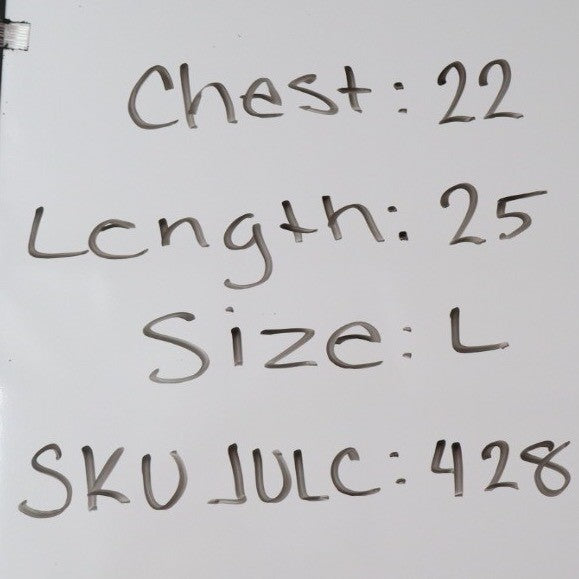 Chest: 22
Length: 25
Size: L
SKU JULC: 428